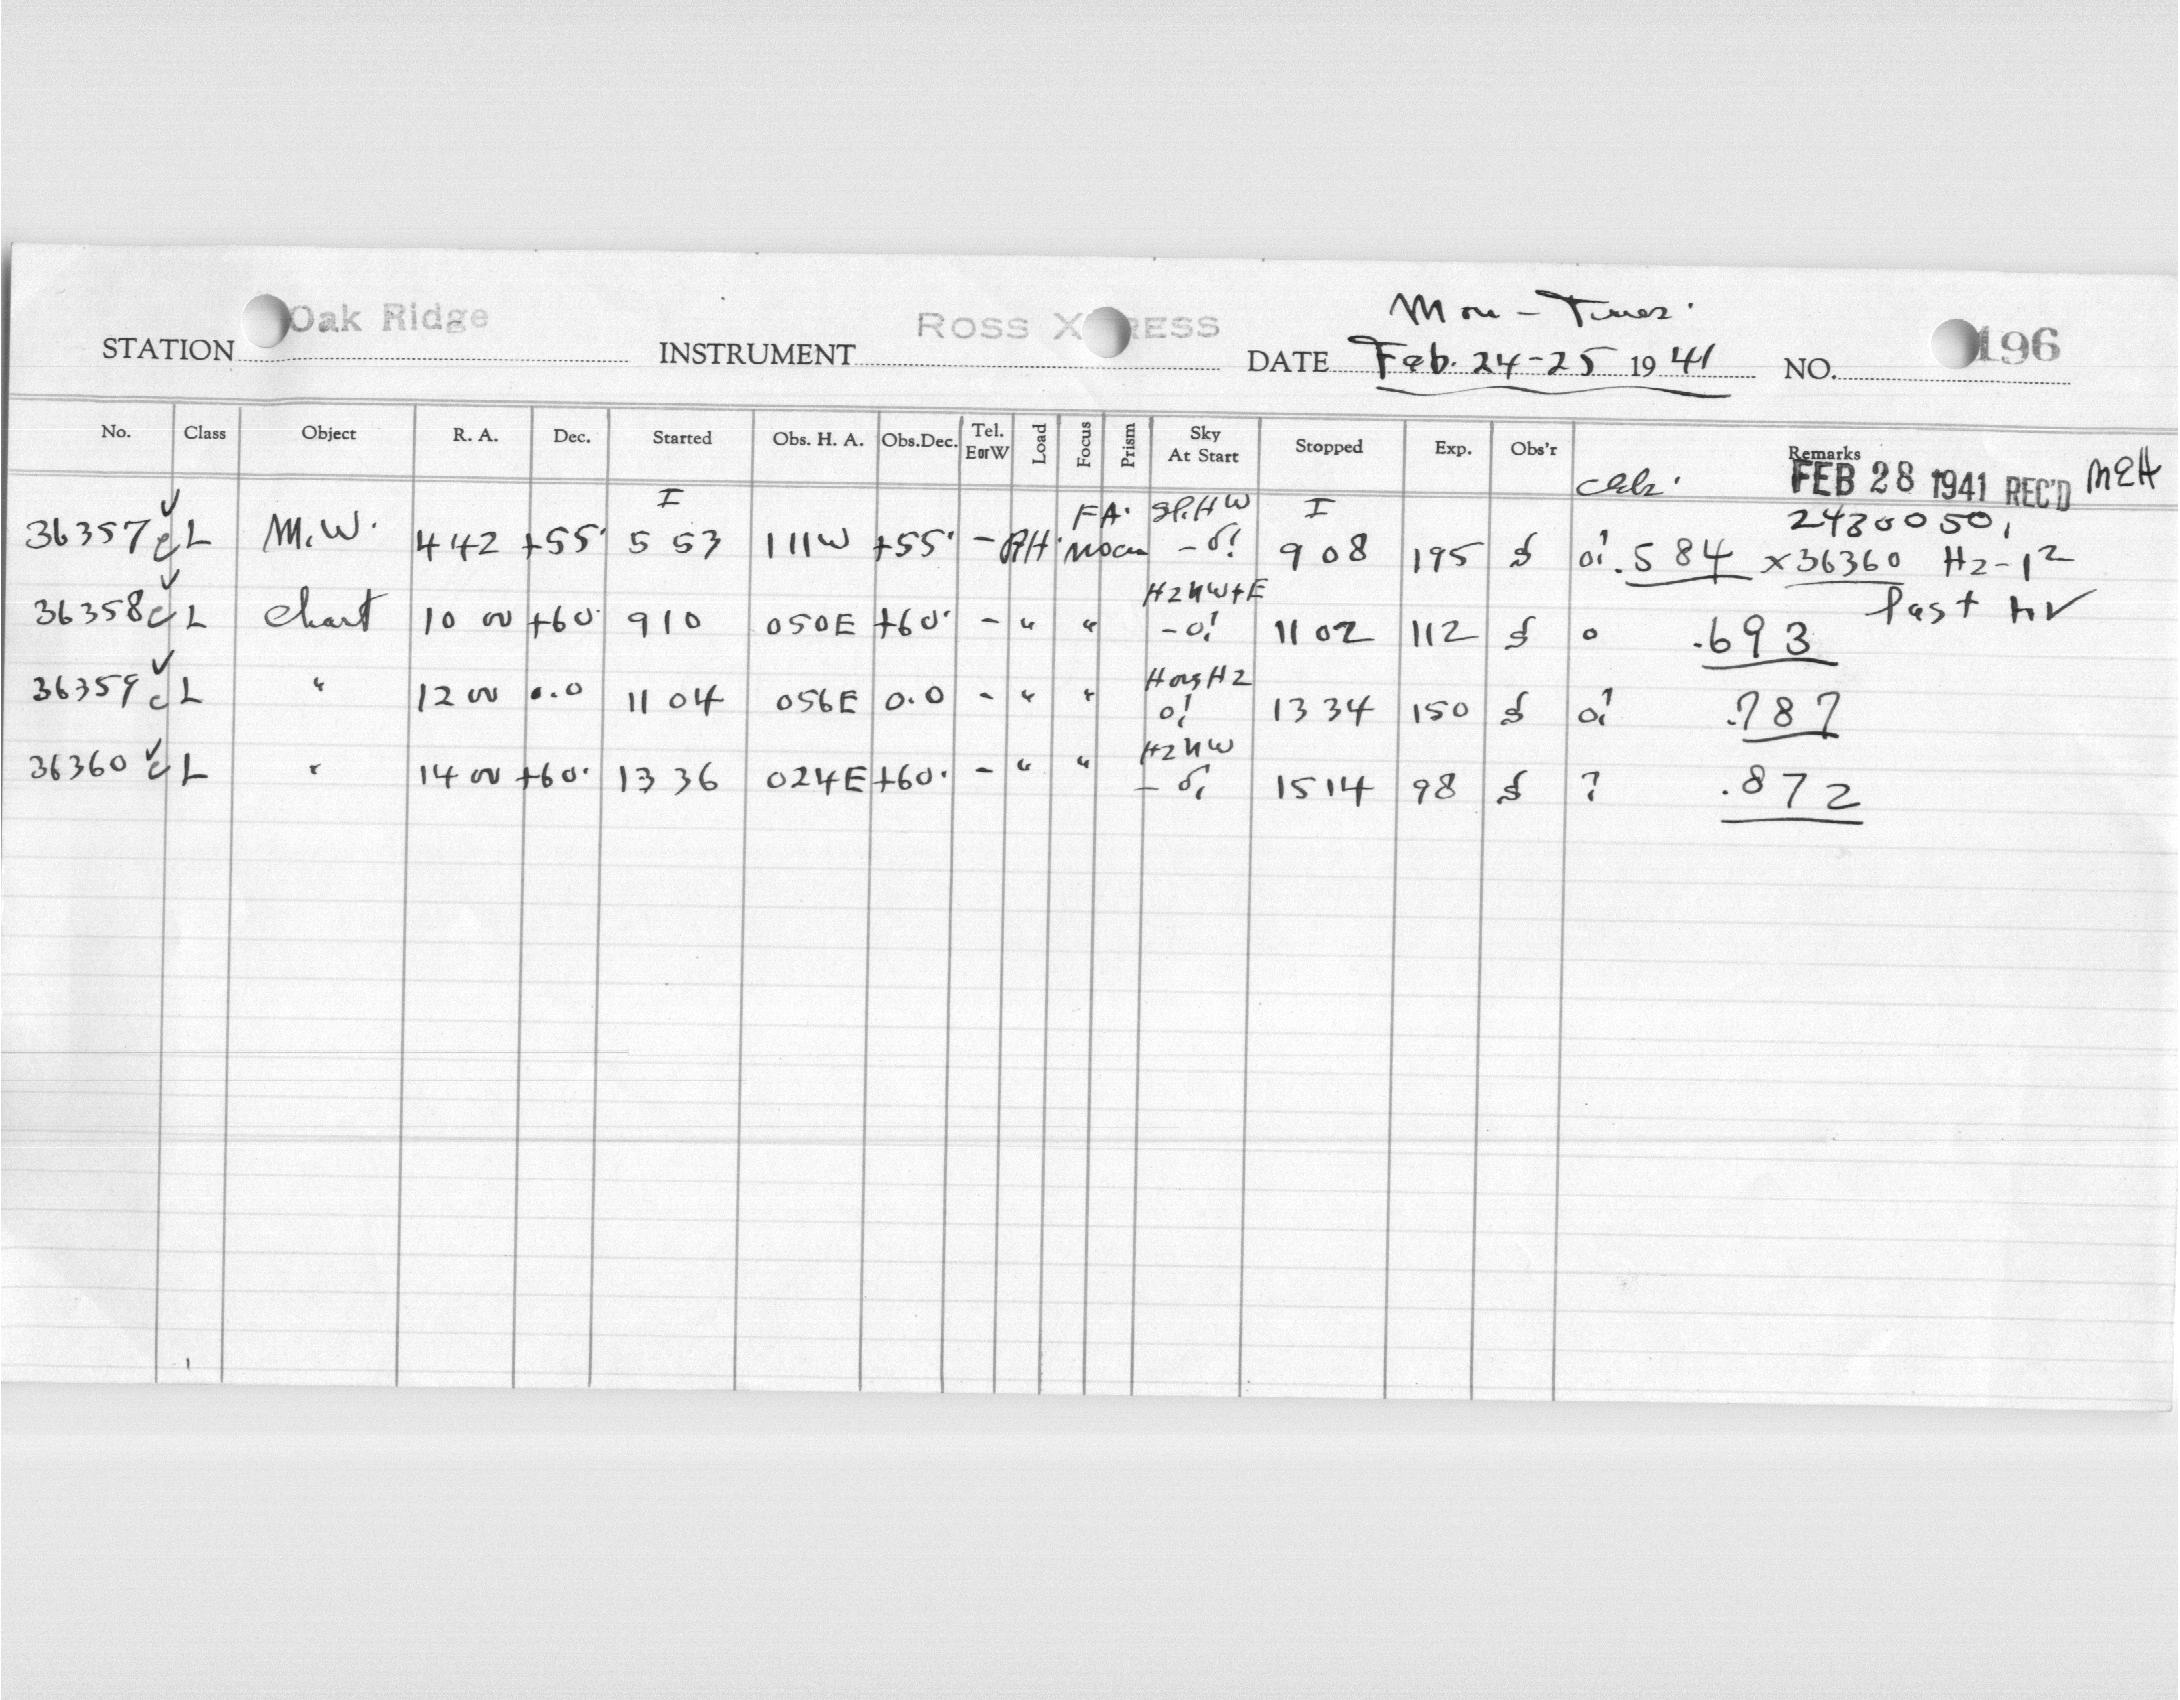 Mon - Tues.
STATION Oak Ridge INSTRUMENT ROSS X RESS DATE Feb. 24-25 1941 NO. 196
No. Class Object R. A. Dec. Started Obs. H. A. Obs.Dec. Tel. EorW Load Focus Prism Sky At Start Stopped Exp. Obs'r Remarks
FEB 28 1941 REC'D MEH
I FA. Sl.HW I 2430050.
36357 c L M.W. 4 42 +55. 5 53 1 11W +55. - RH. Mocu - 9 08 195 .584 x36360 Hz-1²
36358 c L Chart 10 00 +60. 9 10 0 50E +60. - " " HzNW+E 11 02 112 o .693 last hr
36359 c L " 12 00 0.0 11 04 0 56E 0.0 - " " Hz 13 34 150 .787
36360 c L " 14 00 +60. 13 36 0 24E +60. - " " HzNW 15 14 98 ? .872